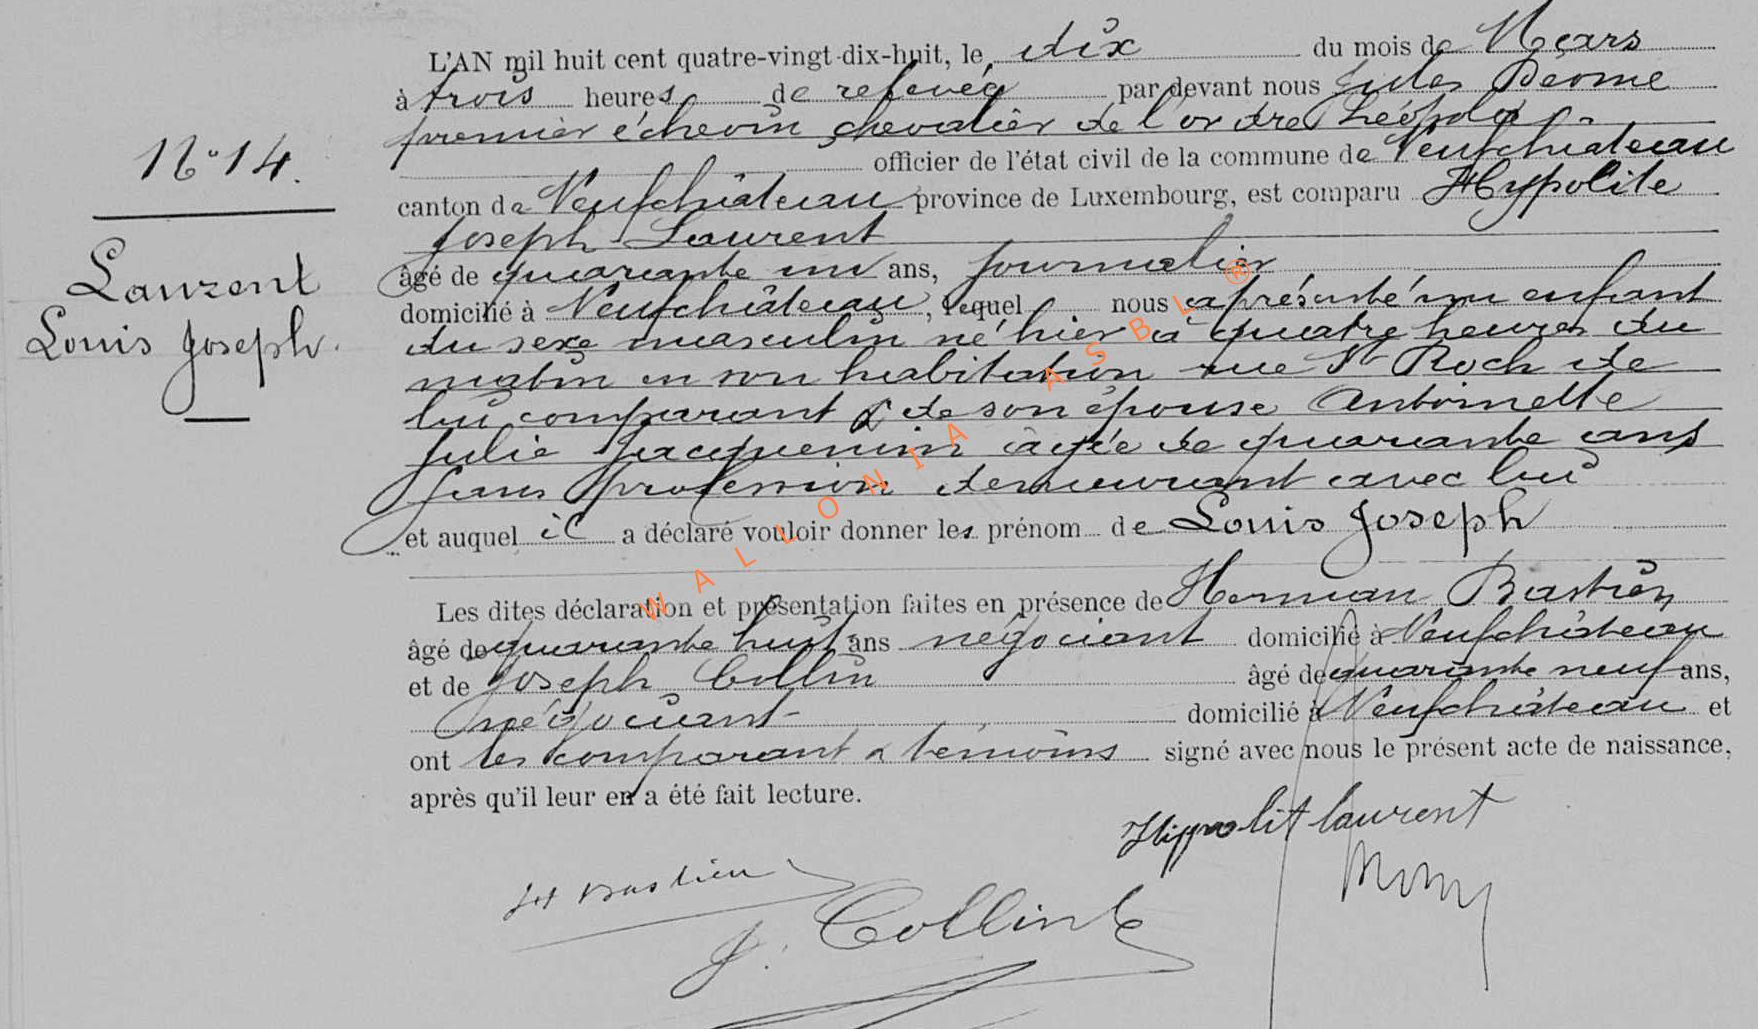 L'AN mil huit cent quatre-vingt-dix-huit, le dix du mois de Mars
à trois heures de relevée par devant nous Jules Déome
premier échevin chevalier de l'ordre Léopold
N° 14.
officier de l'état civil de la commune de Neufchâteau
canton de Neufchâteau province de Luxembourg, est comparu Hypolite
Joseph Laurent
Laurent
Louis Joseph.
âgé de quarante un ans, journalier
domicilié à Neufchâteau, lequel nous a présenté un enfant
du sexe masculin né hier à quatre heures du
matin en son habitation rue St Roch de
lui comparant & de son épouse Antoinette
Julie Jacquemin âgée de quarante ans
sans profession demeurant avec lui
et auquel il a déclaré vouloir donner les prénom de Louis Joseph
Les dites déclaration et présentation faites en présence de Herman Bastien
âgé de quarante huit ans négociant domicilié à Neufchâteau
et de Joseph Collin âgé de quarante neuf ans,
négociant domicilié à Neufchâteau et
ont les comparant & témoins signé avec nous le présent acte de naissance,
après qu'il leur en a été fait lecture.
Hippolit laurent
H Bastien
J. Collin
WALLONIA ASBL ®